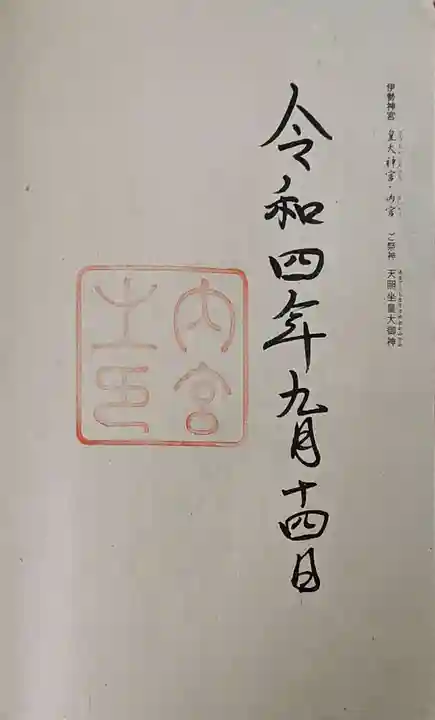 伊勢神宮 皇大神宮・内宮 ご祭神 天照坐皇大御神
令和四年九月十四日
内宮
之印